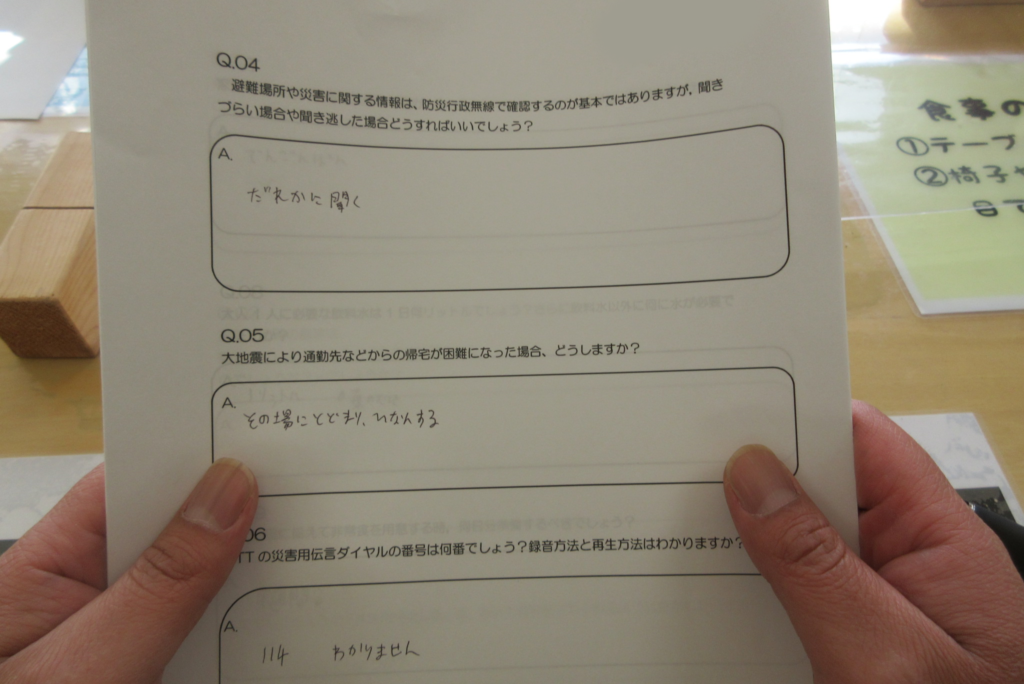 Q.04
避難場所や災害に関する情報は、防災行政無線で確認するのが基本ではありますが、聞き
づらい場合や聞き逃した場合どうすればいいでしょう？
A.
だれかに聞く
Q.05
大地震により通勤先などからの帰宅が困難になった場合、どうしますか？
A.
その場にとどまり、ひなんする
06
TTの災害用伝言ダイヤルの番号は何番でしょう？録音方法と再生方法はわかりますか？
A.
114 わかりません
食事の
①テーブ
②椅子や